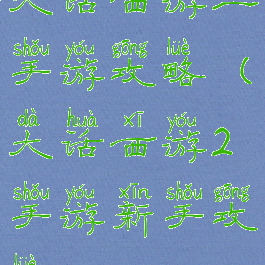 大话西游二
shǒu yóu gōng lüè
手游攻略(
dà huà xī yóu
大话西游2
shǒu yóu xīn shǒu gōng
手游新手攻
lüè